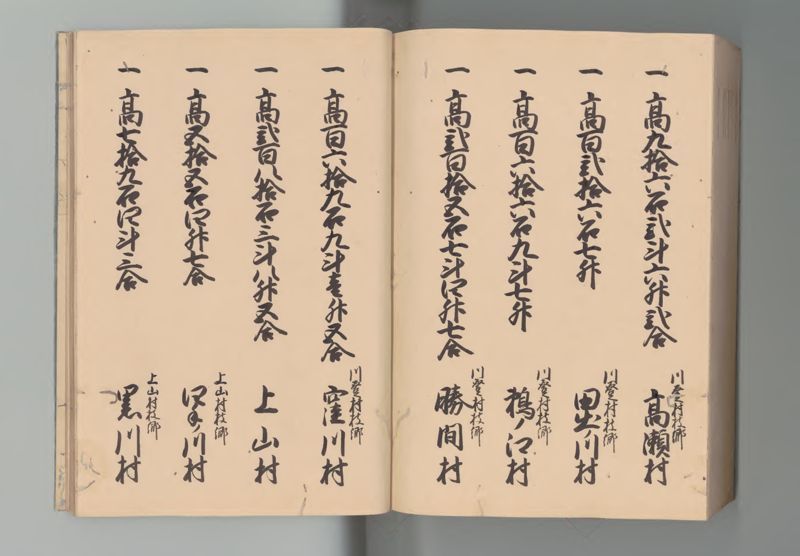 一 高九拾六石弐斗六升弐合
川登村枝郷
高瀬村
一 高百弐拾六石七升
川登村枝郷
田出ノ川村
一 高百六拾六石九斗七升
川登村枝郷
鵜ノ江村
一 高弐百拾五石七斗四升七合
川登村枝郷
勝間村
一 高百六拾九石九斗壱升五合
川登村枝郷
窪川村
一 高弐百八拾石三斗八升五合
上山村
一 高五拾五石四升七合
上山村枝郷
川村
一 高七拾九石四斗三合
上山村枝郷
黒川村